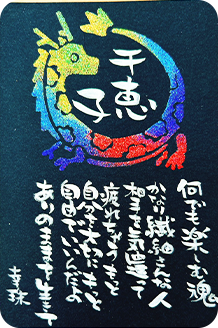 千恵子
何でも楽しむ魂
かなり繊細さんな人
相手を気遣って
疲れちゃうきっと
自分を大切にもっと
自由でいいんだよ
ありのままで生きて
幸球